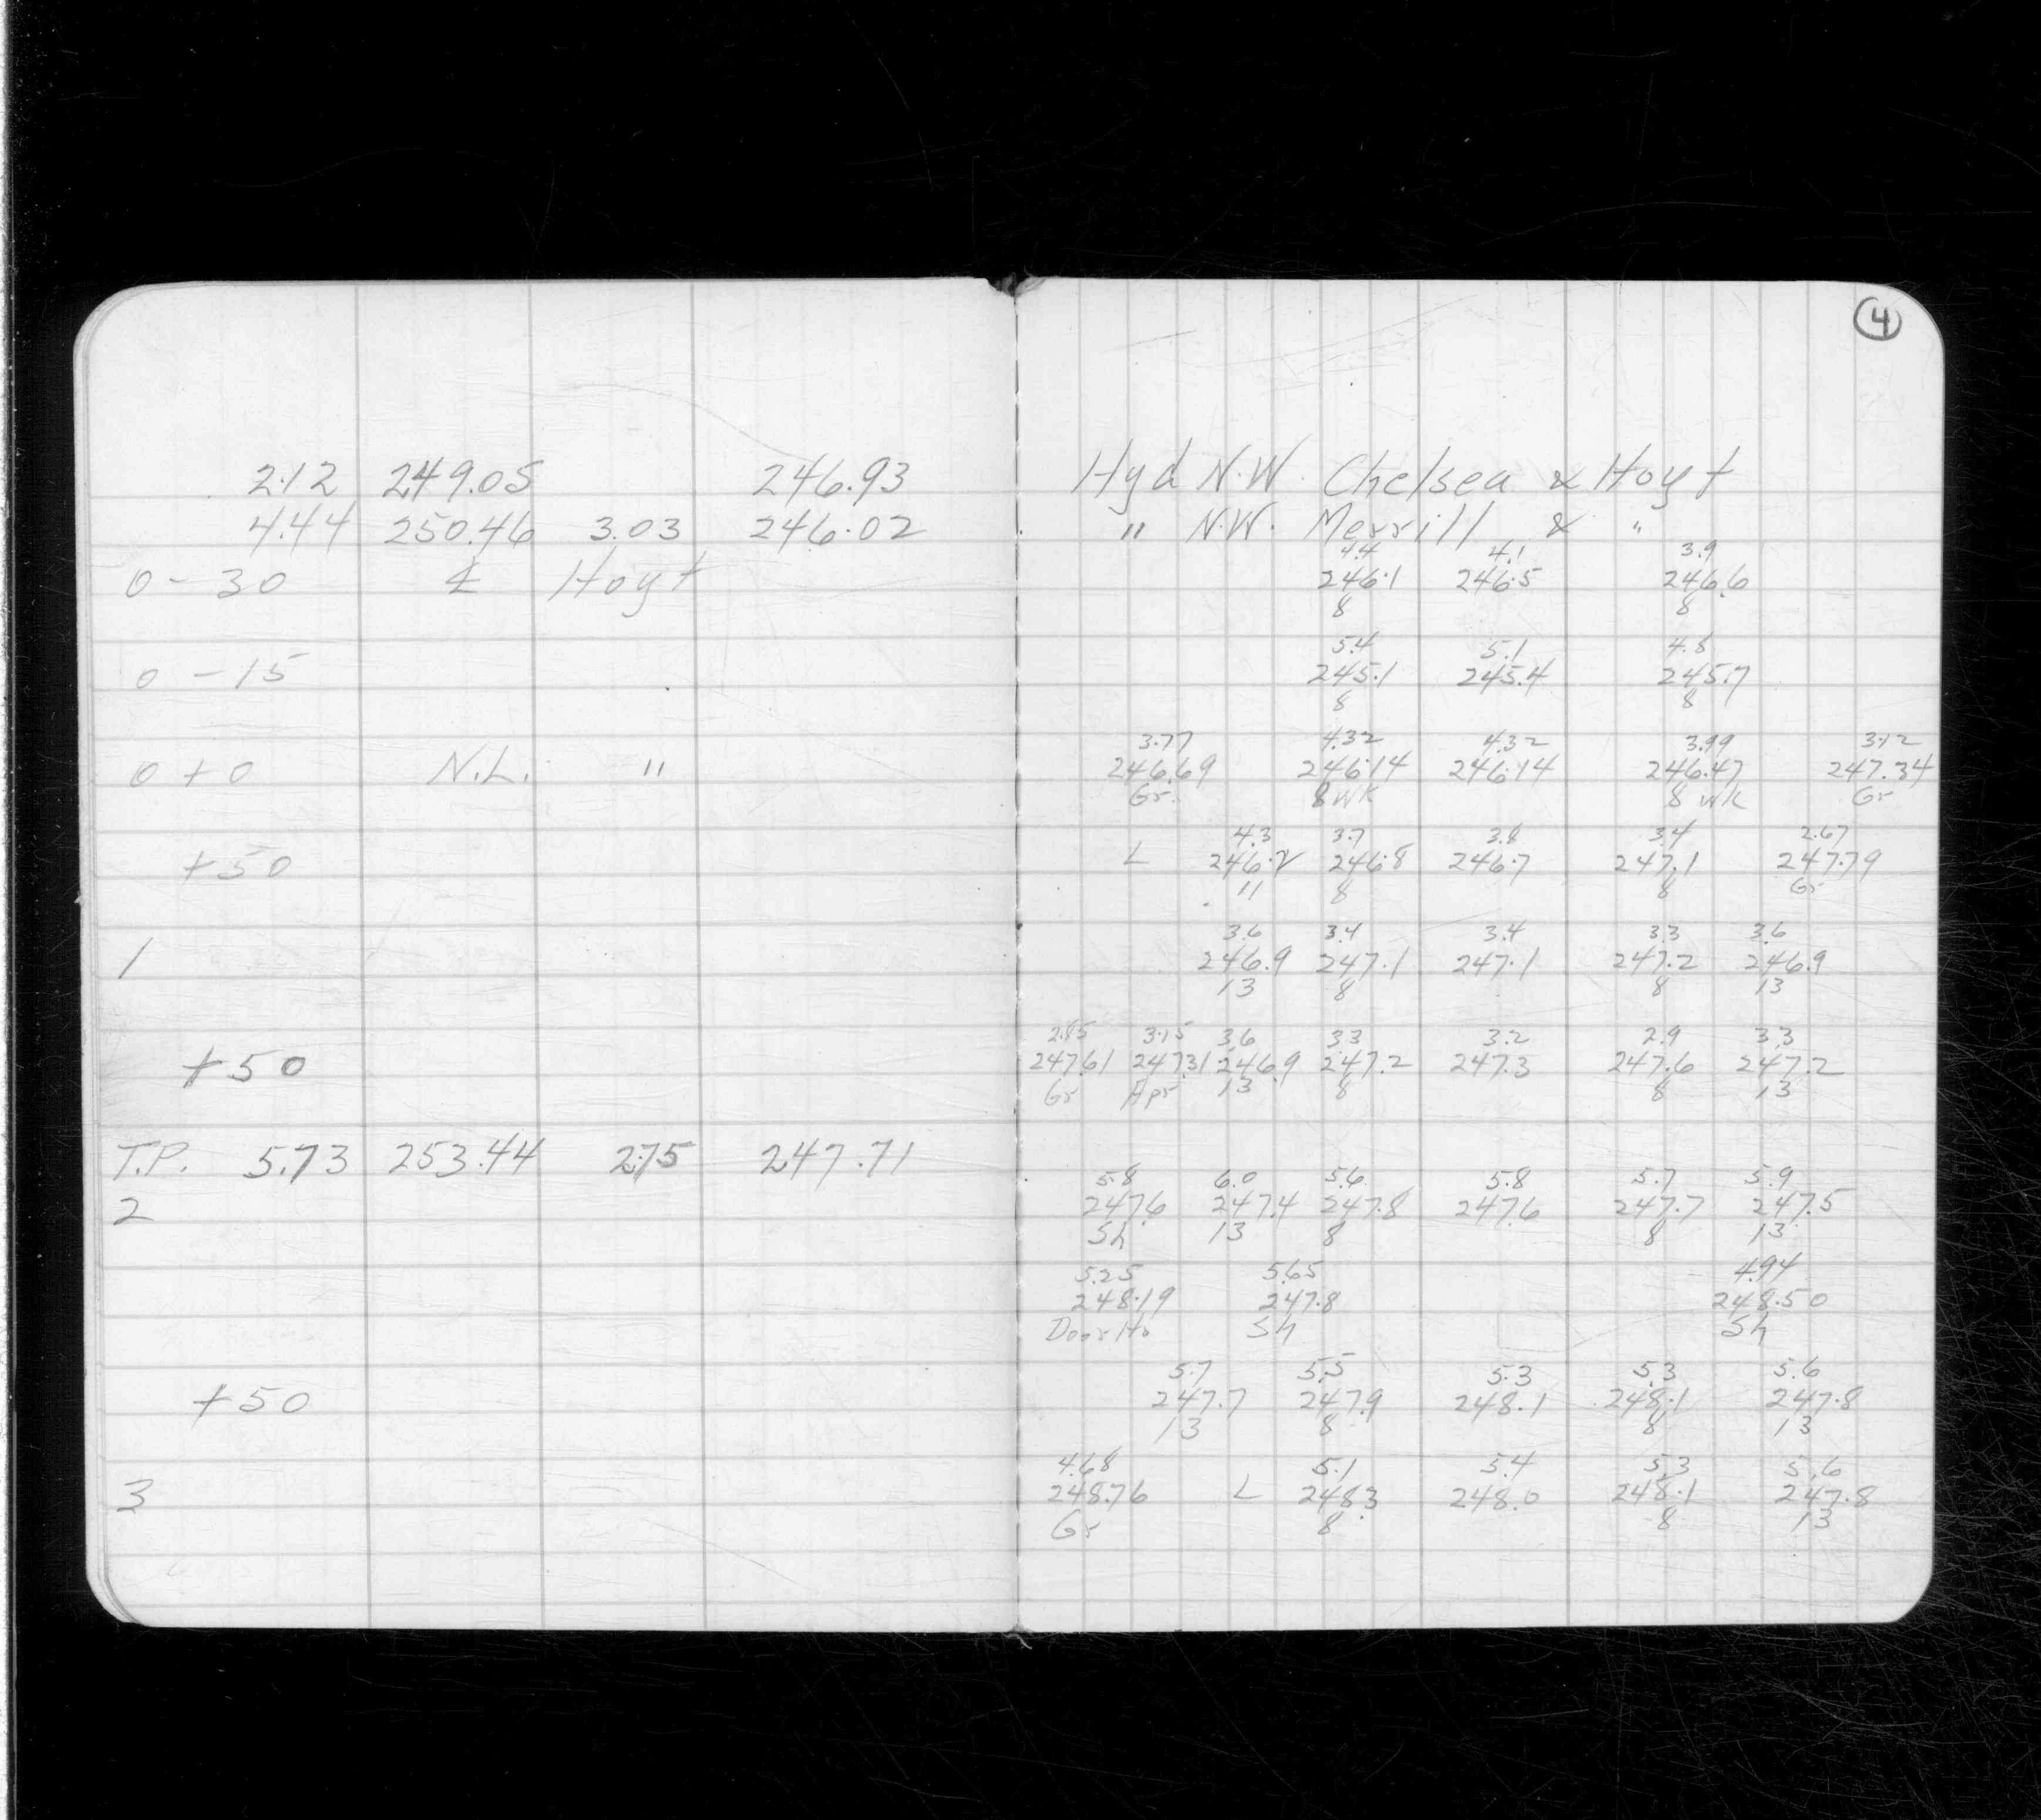 4
2.12 249.05 246.93
4.44 250.46 3.03 246.02
0 - 30 ℄ Hoyt
0 - 15
0 + 0 N.L. "
+50
1
+50
T.P. 5.73 253.44 2.75 247.71
2
+50
3
Hyd N.W. Chelsea & Hoyt
" N.W. Merrill & "
4.4 4.1 3.9
246.1 246.5 246.6
8 8
5.4 5.1 4.8
245.1 245.4 245.7
8 8
3.77 4.32 4.32 3.99 3.12
246.69 246.14 246.14 246.47 247.34
Gr. 8 WK 8 WK Gr
4.3 3.7 3.8 3.4 2.67
L 246.2 246.8 246.7 247.1 247.79
11 8 8 Gr
3.6 3.4 3.4 3.3 3.6
246.9 247.1 247.1 247.2 246.9
13 8 8 13
2.85 3.15 3.6 3.3 3.2 2.9 3.3
247.61 247.31 246.9 247.2 247.3 247.6 247.2
Gr Apr 13 8 8 13
5.8 6.0 5.6 5.8 5.7 5.9
247.6 247.4 247.8 247.6 247.7 247.5
Sh 13 8 8 13
5.25 5.65 4.94
248.19 247.8 248.50
Door Ho Sh Sh
5.7 5.5 5.3 5.3 5.6
247.7 247.9 248.1 248.1 247.8
13 8 8 13
4.68 5.1 5.4 5.3 5.6
248.76 L 248.3 248.0 248.1 247.8
Gr 8 8 13